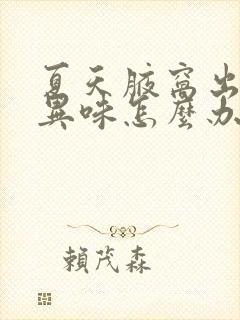 夏天腋窩出
異味怎麼办
賴茂森